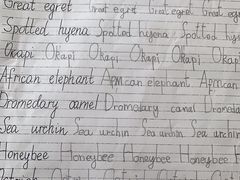 Great egret Great egret Great egret Great
Spotted hyena Spotted hyena Spotted hyena
Okapi Okapi Okapi Okapi Okapi Okapi
African elephant African elephant African
Dromedary camel Dromedary camel Dromedary
Sea urchin Sea urchin Sea urchin Sea urchin
Honeybee Honeybee Honeybee Honeybee